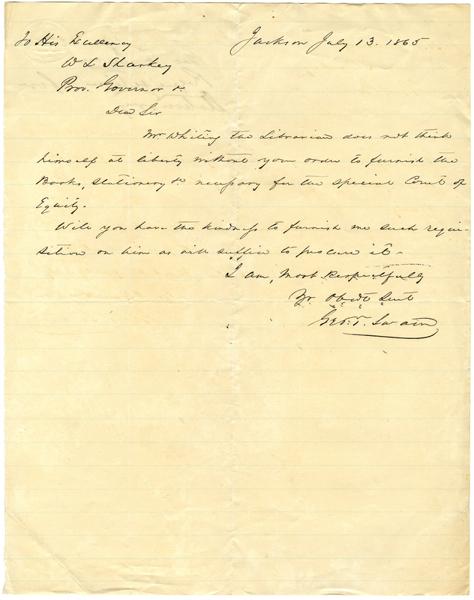 To His Excellency Jackson July 13. 1865
W L Sharkey
Prov. Governor &c
Dear Sir
Mr Whiting the Librarian does not think
himself at liberty without your order to furnish the
Books, stationery &c necessary for the special Court of
Equity.
Will you have the kindness to furnish me such requi-
sition on him as will suffice to procure it -
I am, Most Respectfully
Yr. Obdt Svt
Geo. T. Swann